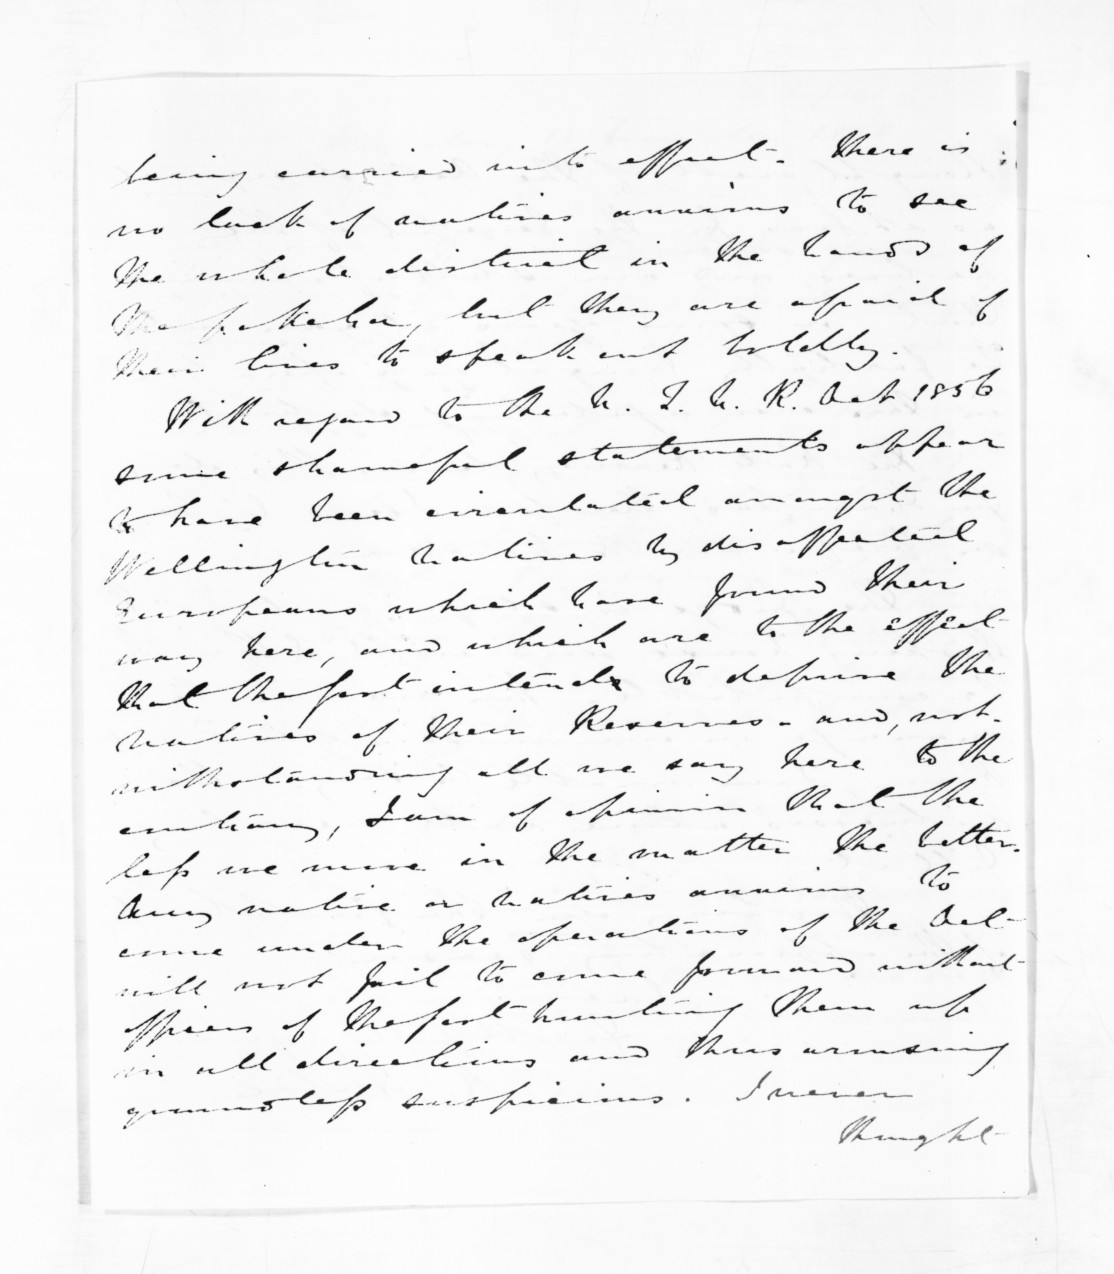 being carried into effect. There is
no lack of natives anxious to see
the whole district in the hands of
the pakeha, but they are afraid of
their lives to speak out boldly.
With regard to the N. Z. N. R. Act 1856
some shameful statements appear
to have been circulated amongst the
Wellington natives by disaffected
Europeans which have found their
way here, and which are to the effect
that the Govt intends to deprive the
natives of their Reserves - and, not-
withstanding all we say here to the
contrary, I am of opinion that the
less we move in the matter the better.
Any native or natives anxious to
come under the operations of the Act
will not fail to come forward without
officers of the Govt hunting them up
in all directions and thus arousing
groundless suspicions. I never
thought